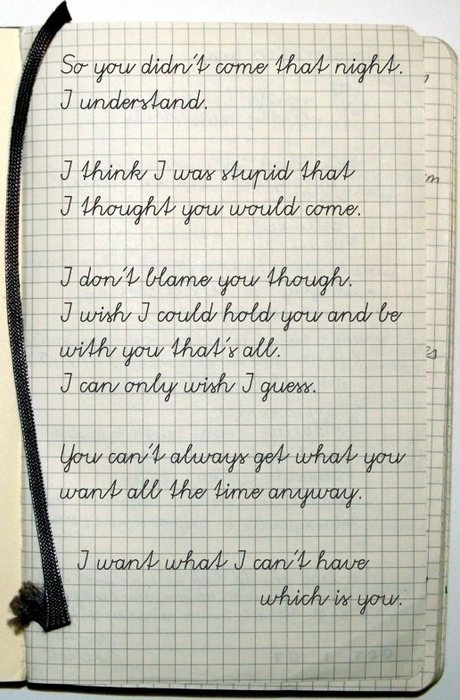 So you didn't come that night.
I understand.
I think I was stupid that
I thought you would come.
I don't blame you though.
I wish I could hold you and be
with you that's all.
I can only wish I guess.
You can't always get what you
want all the time anyway.
I want what I can't have
which is you.